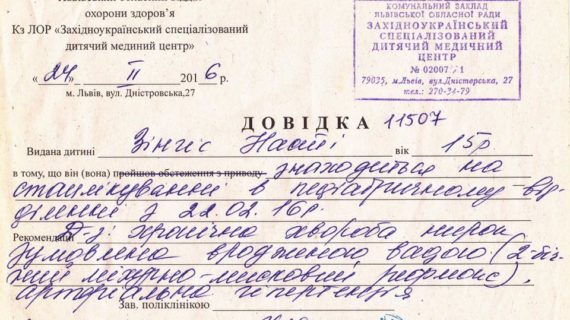 охорони здоров’я
Кз ЛОР «Західноукраїнський спеціалізований
дитячий мединий центр»
« 24 » II 2016 р.
м. Львів, вул. Дністровська,27
КОМУНАЛЬНИЙ ЗАКЛАД
ЛЬВІВСЬКОЇ ОБЛАСНОЇ РАДИ
ЗАХІДНОУКРАЇНСЬКИЙ
СПЕЦІАЛІЗОВАНИЙ
ДИТЯЧИЙ МЕДИЧНИЙ
ЦЕНТР
79035, м.Львів, вул. Дністерська, 27
тел.: 270-34-79
ДОВІДКА 11507
Видана дитині Зінгіс Наомі вік 15р
в тому, що він (вона) пройшов обстеження з приводу знаходиться на
стацлікуванні в педіатричному від-
діленні з 22.02.16р.
Рекомендації Д-з: хронічна хвороба нирок
зумовлена вродженою вадою (2-біч-
ний міхурно-мисковий рефлюкс),
артеріальна гіпертензія
Зав. поліклінікою